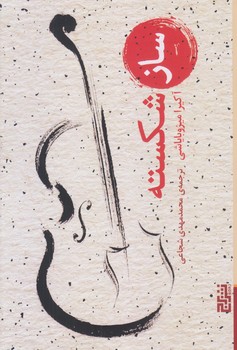 ساز
شکسته
آکیرا میزوبایاشی
ترجمه‌ی محمدمهدی شجاعی